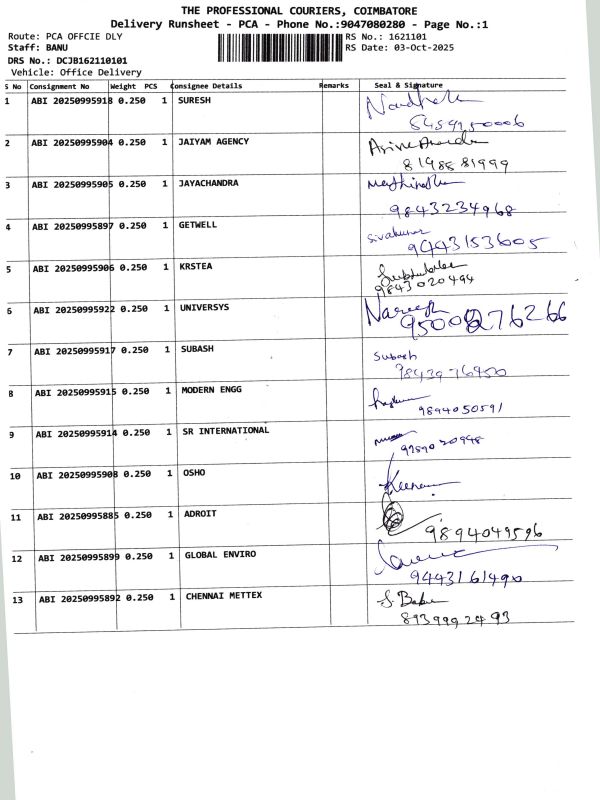 THE PROFESSIONAL COURIERS, COIMBATORE
Delivery Runsheet - PCA - Phone No.:9047080280 - Page No.:1
Route: PCA OFFCIE DLY RS No.: 1621101
Staff: BANU RS Date: 03-Oct-2025
DRS No.: DCJB162110101
Vehicle: Office Delivery
S No Consignment No Weight PCS Consignee Details Remarks Seal & Signature
1 ABI 20250995918 0.250 1 SURESH
2 ABI 20250995904 0.250 1 JAIYAM AGENCY
81988 81999
3 ABI 20250995905 0.250 1 JAYACHANDRA
9843234968
4 ABI 20250995897 0.250 1 GETWELL Sivakumar
9443153605
5 ABI 20250995906 0.250 1 KRSTEA
9843020494
6 ABI 20250995922 0.250 1 UNIVERSYS Nareesh
7 ABI 20250995917 0.250 1 SUBASH Subash
8 ABI 20250995915 0.250 1 MODERN ENGG
9894050591
9 ABI 20250995914 0.250 1 SR INTERNATIONAL
10 ABI 20250995908 0.250 1 OSHO
11 ABI 20250995885 0.250 1 ADROIT
9894049596
12 ABI 20250995899 0.250 1 GLOBAL ENVIRO
9443161490
13 ABI 20250995892 0.250 1 CHENNAI METTEX S. Babu
8939992493